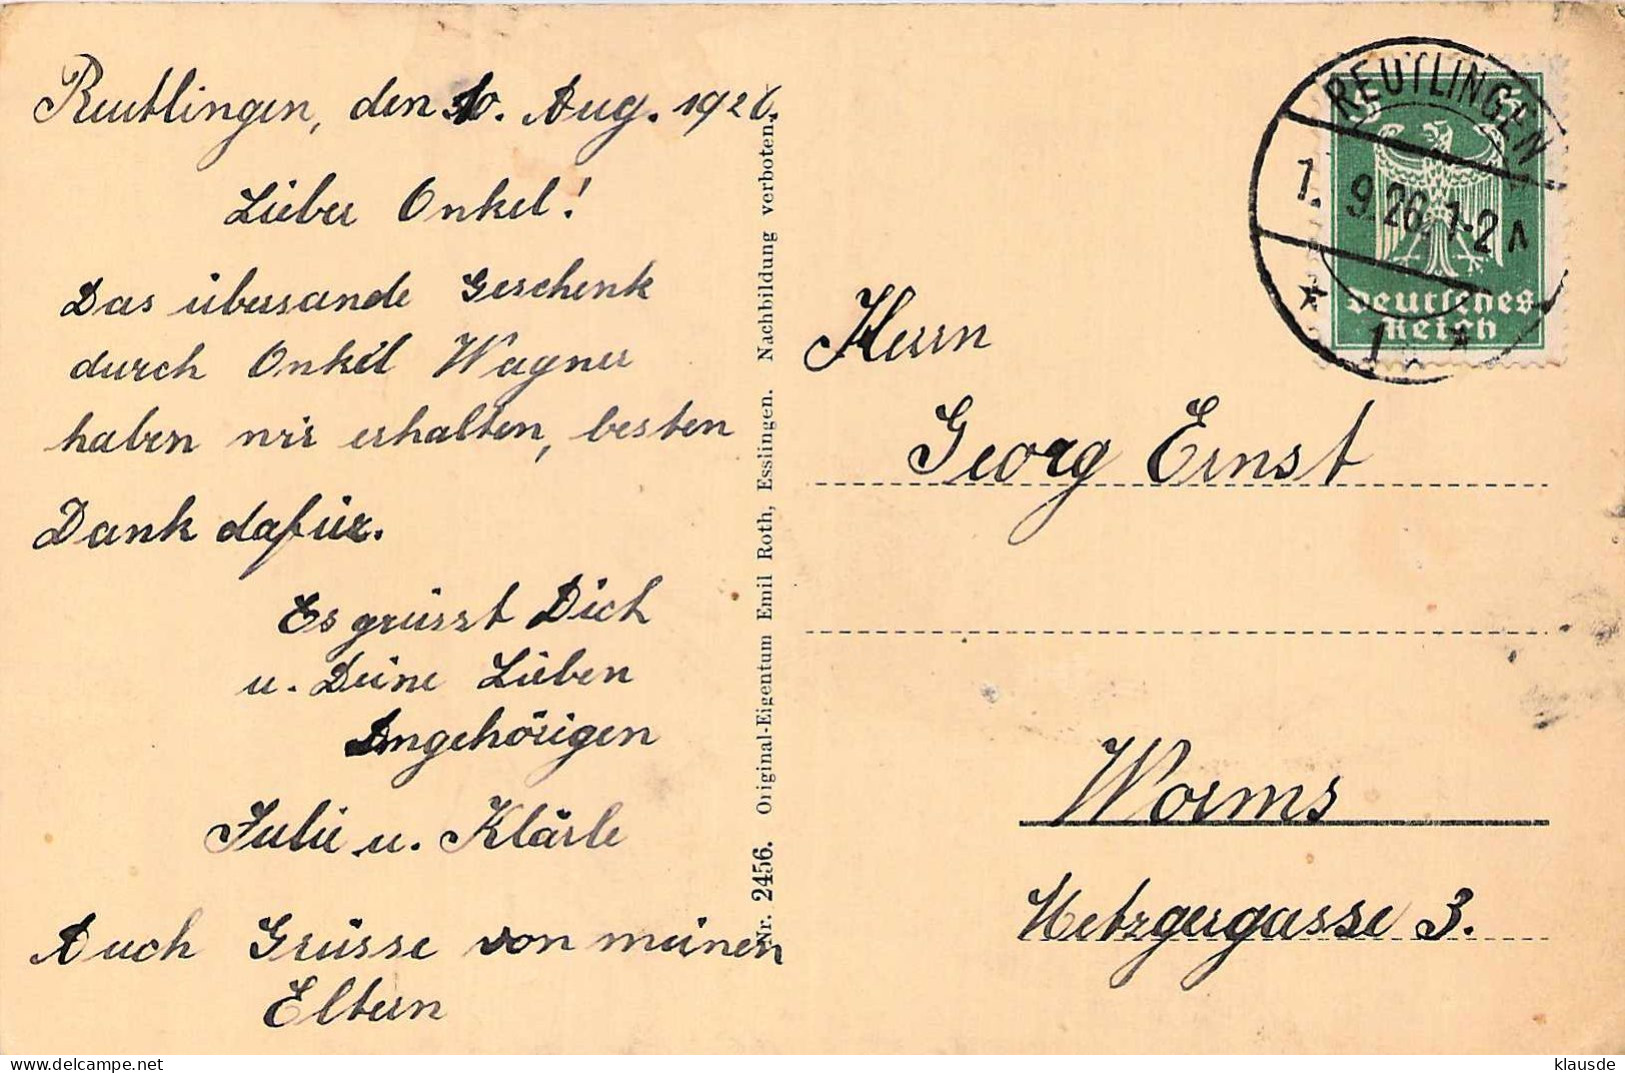 Reutlingen, den 10. Aug. 1926.
Lieber Onkel!
Das übersande Geschenk
durch Onkel Wagner
haben wir erhalten, besten
Dank dafür.
Es grüsst Dich
u. Deine Lieben
Angehörigen
Julie u. Klärle
Auch Grüsse von meinen
Eltern
Nr. 2456. Original-Eigentum Emil Roth, Esslingen. Nachbildung verboten.
REUTLINGEN
1. 9.26. 1-2 A
* 1 *
5 5
Deutsches
Reich
Herrn
Georg Ernst
Worms
Metzgergasse 3.
klausde